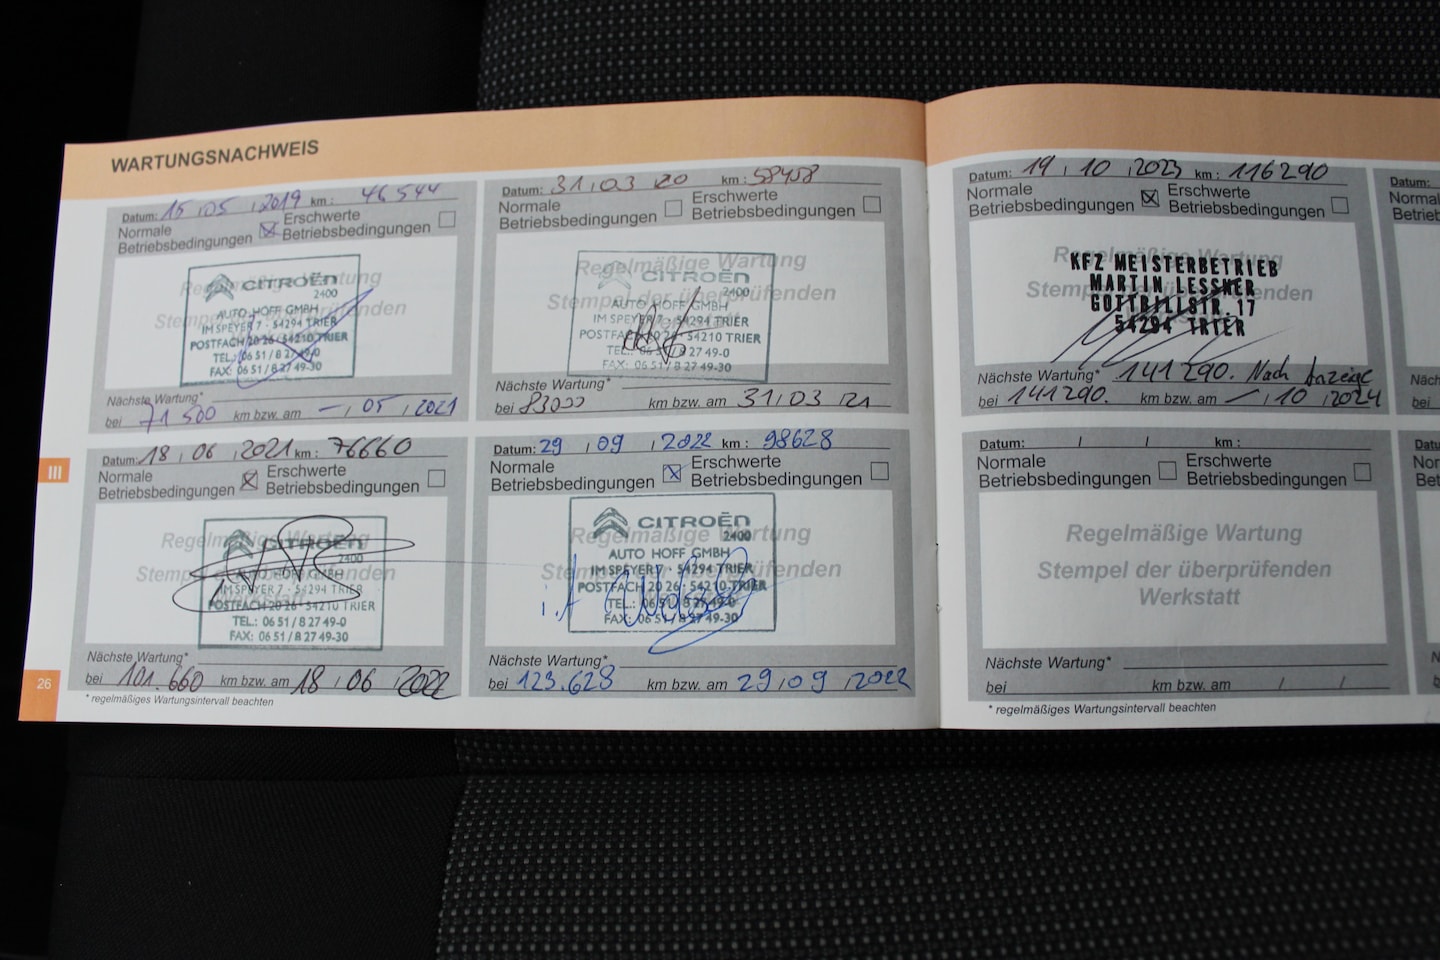 WARTUNGSNACHWEIS
Datum: 15 , 05 , 2019 km : 46 544
Normale
Betriebsbedingungen
Erschwerte
Betriebsbedingungen
Regelmäßige Wartung
Stempel der überprüfenden
CITROËN
2400
AUTO HOFF GMBH
IM SPEYER 7 · 54294 TRIER
POSTFACH 20 26 · 54210 TRIER
TEL.: 06 51 / 8 27 49-0
FAX: 06 51 / 8 27 49-30
Nächste Wartung*
bei 71 500 km bzw. am – , 05 , 2021
Datum: 31,03 20 km : 58408
Normale
Betriebsbedingungen
Erschwerte
Betriebsbedingungen
Regelmäßige Wartung
Stempel der überprüfenden
CITROËN
2400
AUTO HOFF GMBH
IM SPEYER 7 · 54294 TRIER
POSTFACH 20 26 · 54210 TRIER
TEL.: 06 51 / 8 27 49-0
FAX: 06 51 / 8 27 49-30
Nächste Wartung*
bei 83000 km bzw. am 31,03 21
Datum: 18 , 06 , 2021 km : 76660
Normale
Betriebsbedingungen
Erschwerte
Betriebsbedingungen
Regelmäßige Wartung
Stempel der überprüfenden
CITROËN
2400
AUTO HOFF GMBH
IM SPEYER 7 · 54294 TRIER
POSTFACH 20 26 · 54210 TRIER
TEL.: 06 51 / 8 27 49-0
FAX: 06 51 / 8 27 49-30
Nächste Wartung*
bei 101.660 km bzw. am 18 , 06 , 2022
* regelmäßiges Wartungsintervall beachten
Datum: 29 , 09 , 2022 km : 98628
Normale
Betriebsbedingungen
Erschwerte
Betriebsbedingungen
Regelmäßige Wartung
Stempel der überprüfenden
CITROËN
2400
AUTO HOFF GMBH
IM SPEYER 7 · 54294 TRIER
POSTFACH 20 26 · 54210 TRIER
TEL.: 06 51 / 8 27 49-0
FAX: 06 51 / 8 27 49-30
i.A
Nächste Wartung*
bei 123.628 km bzw. am 29,09 ,2022
III
26
Datum: 19 , 10 ,2023 km : 116290
Normale
Betriebsbedingungen
Erschwerte
Betriebsbedingungen
Regelmäßige Wartung
Stempel der überprüfenden
KFZ MEISTERBETRIEB
MARTIN LESSNER
GOTTBILLSTR.17
54294 TRIER
Nächste Wartung* 141 290. Nach Anzeige
bei 141290. km bzw. am – , 10 , 2024
Datum: / / km :
Normale
Betriebsbedingungen
Erschwerte
Betriebsbedingungen
Regelmäßige Wartung
Stempel der überprüfenden
Werkstatt
Nächste Wartung*
bei km bzw. am / /
* regelmäßiges Wartungsintervall beachten
Datum: